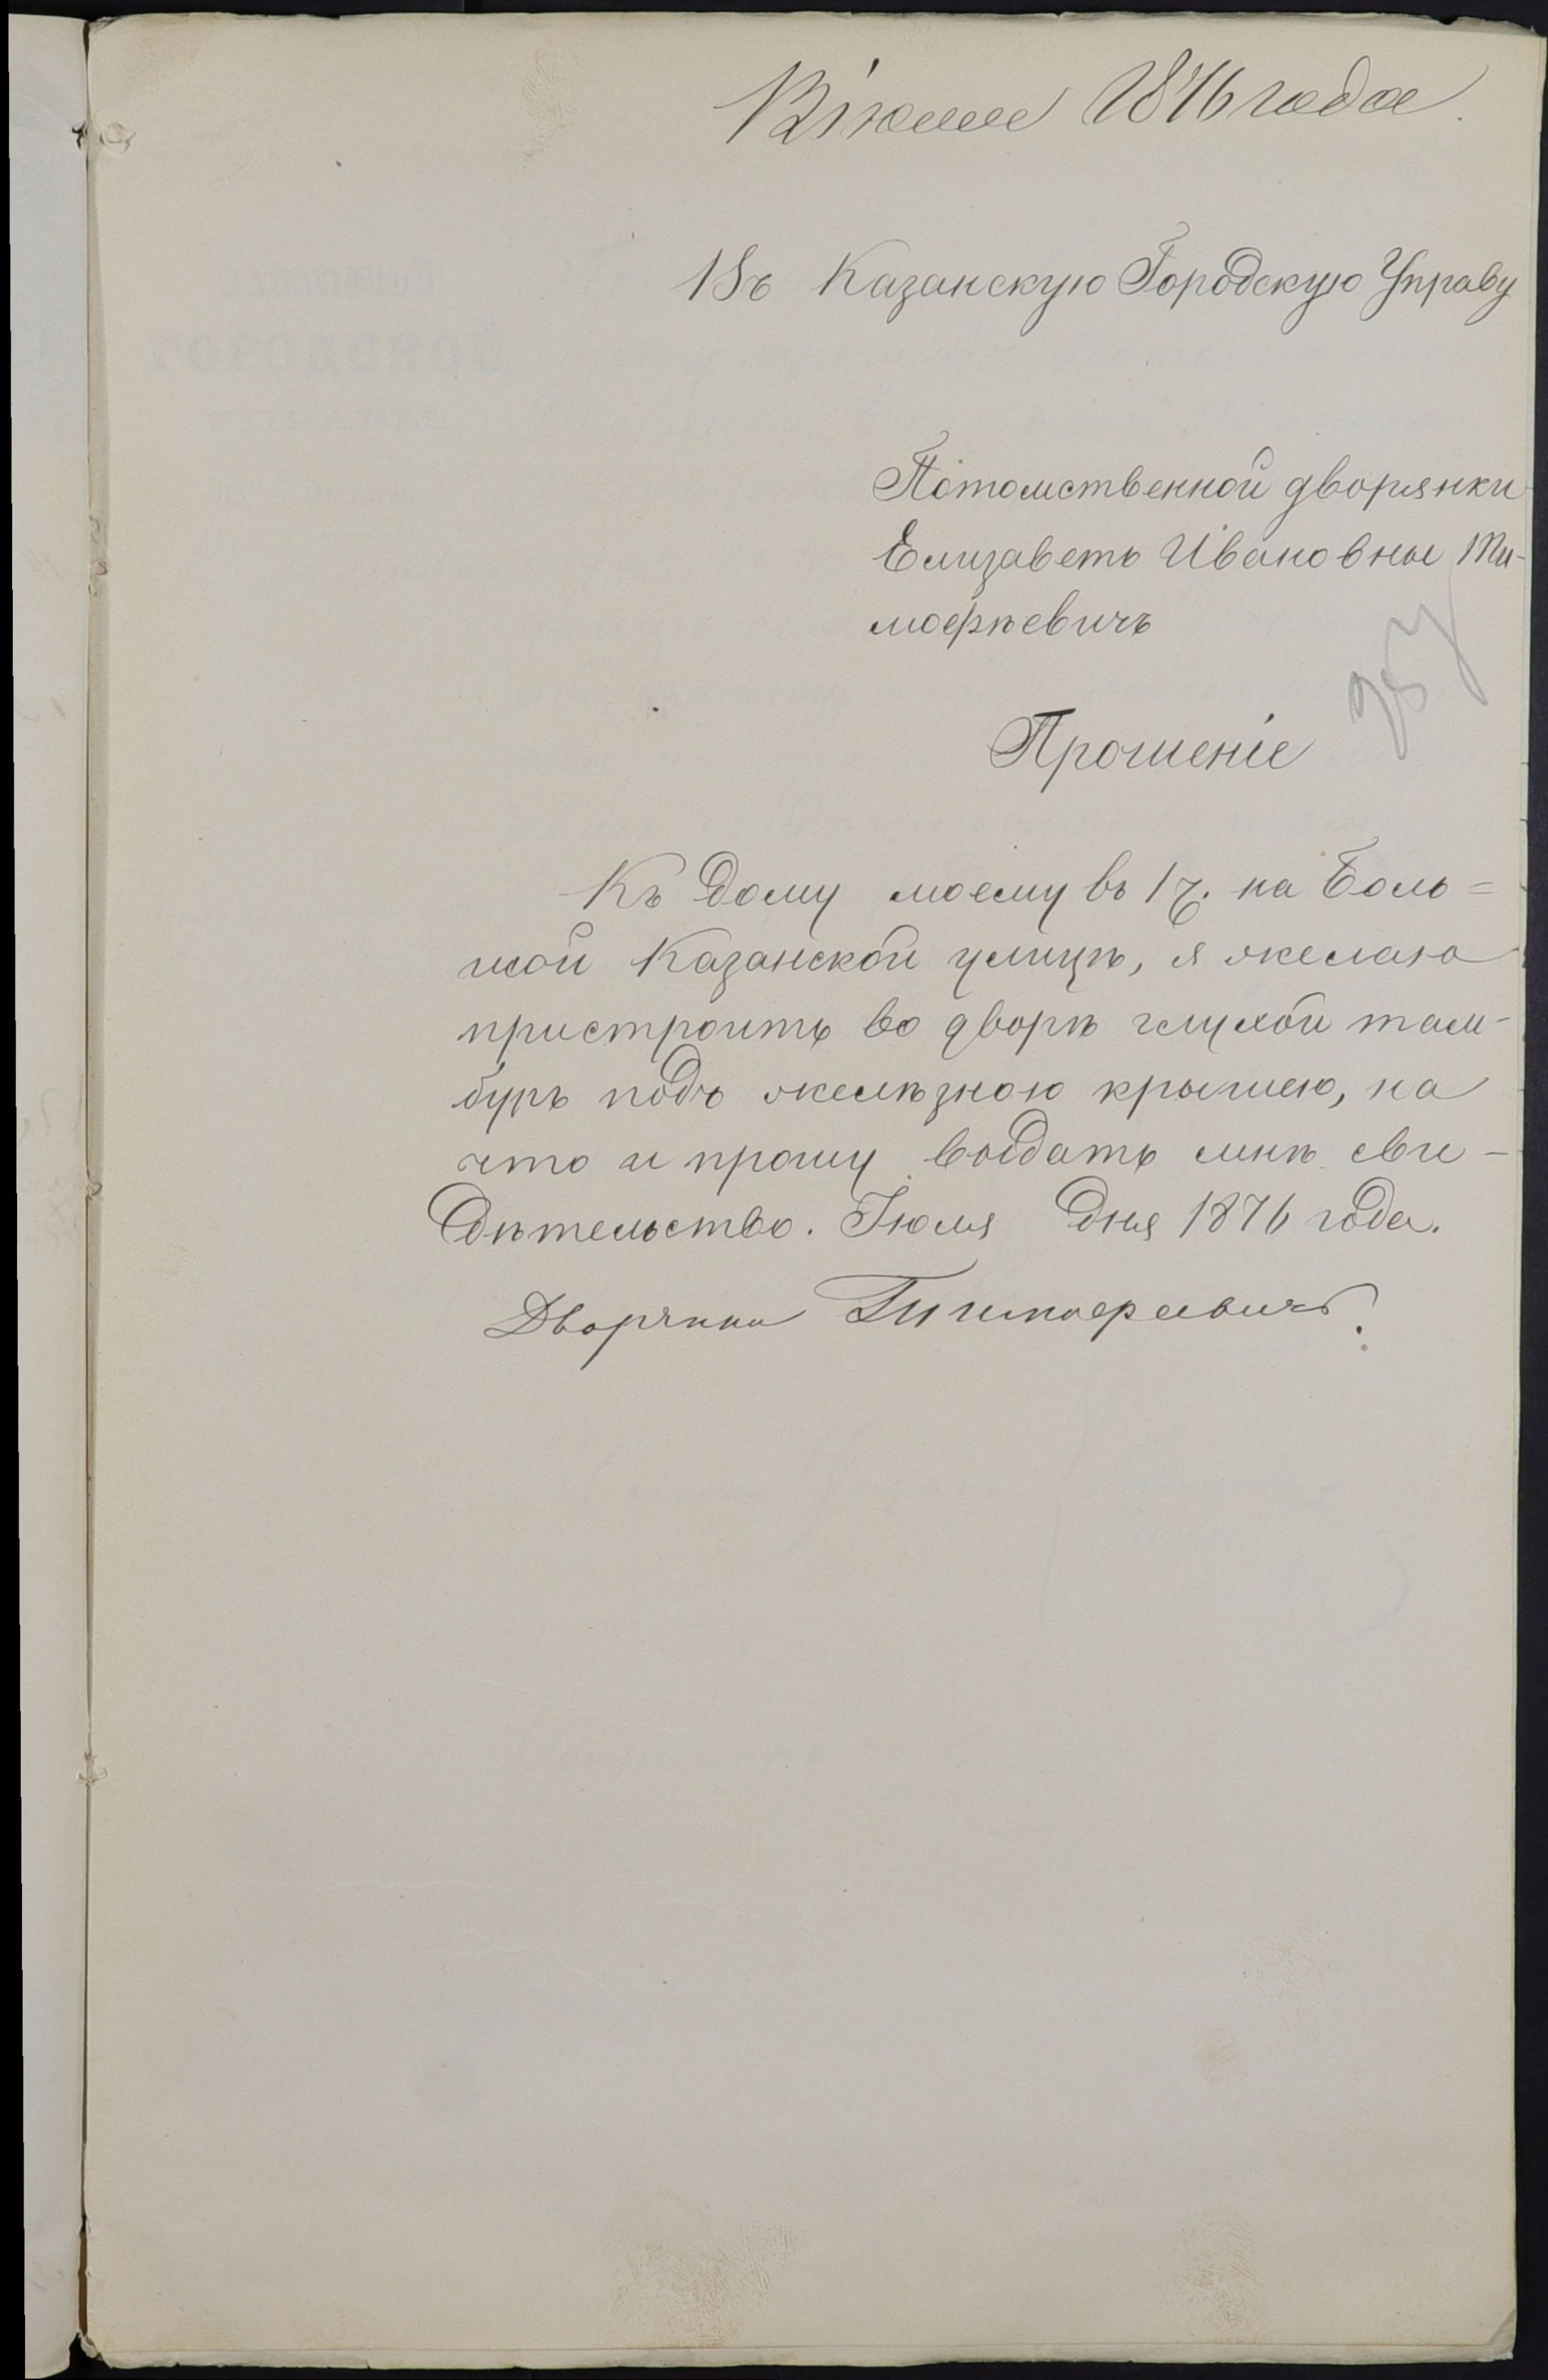 13 іюля 1876 года.
Въ Казанскую Городскую Управу
Потомственной дворянки
Елизаветы Ивановны Ти-
мофѣевичъ
Прошеніе
Къ дому моему въ 1 ч. на Боль=
шой Казанской улицѣ, я желаю
пристроить во дворѣ глухой там-
буръ подъ желѣзною крышею, на
что и прошу выдать мнѣ сви-
дѣтельство. Іюля дня 1876 года.
Дворянка Тимофеевичъ.